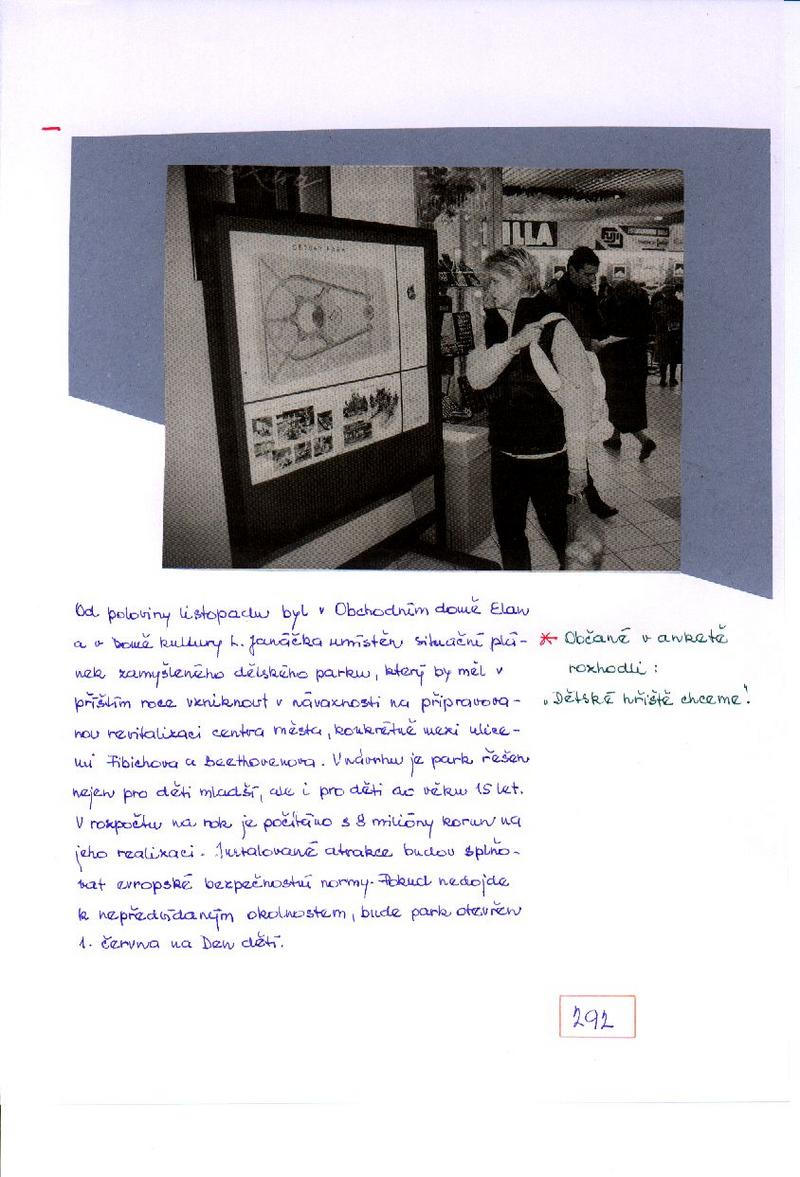 DĚTSKÝ PARK
ILLA
FUJI
Od poloviny listopadu byl v Obchodním domě Elan
a v Domě kultury L. Janáčka umístěn situační plá-
nek zamyšleného dětského parku, který by měl v
příštím roce vzniknout v návaznosti na připravova-
nou revitalizaci centra města, konkrétně mezi ulice-
mi Fibichova a Beethovenova. V návrhu je park řešen
nejen pro děti mladší, ale i pro děti do věku 15 let.
V rozpočtu na rok je počítáno s 8 milióny korun na
jeho realizaci. Instalované atrakce budou splňo-
vat evropské bezpečnostní normy. Pokud nedojde
k nepředvídaným okolnostem, bude park otevřen
1. června na Den dětí.
* Občané v anketě
rozhodli :
„Dětské hřiště chceme".
292